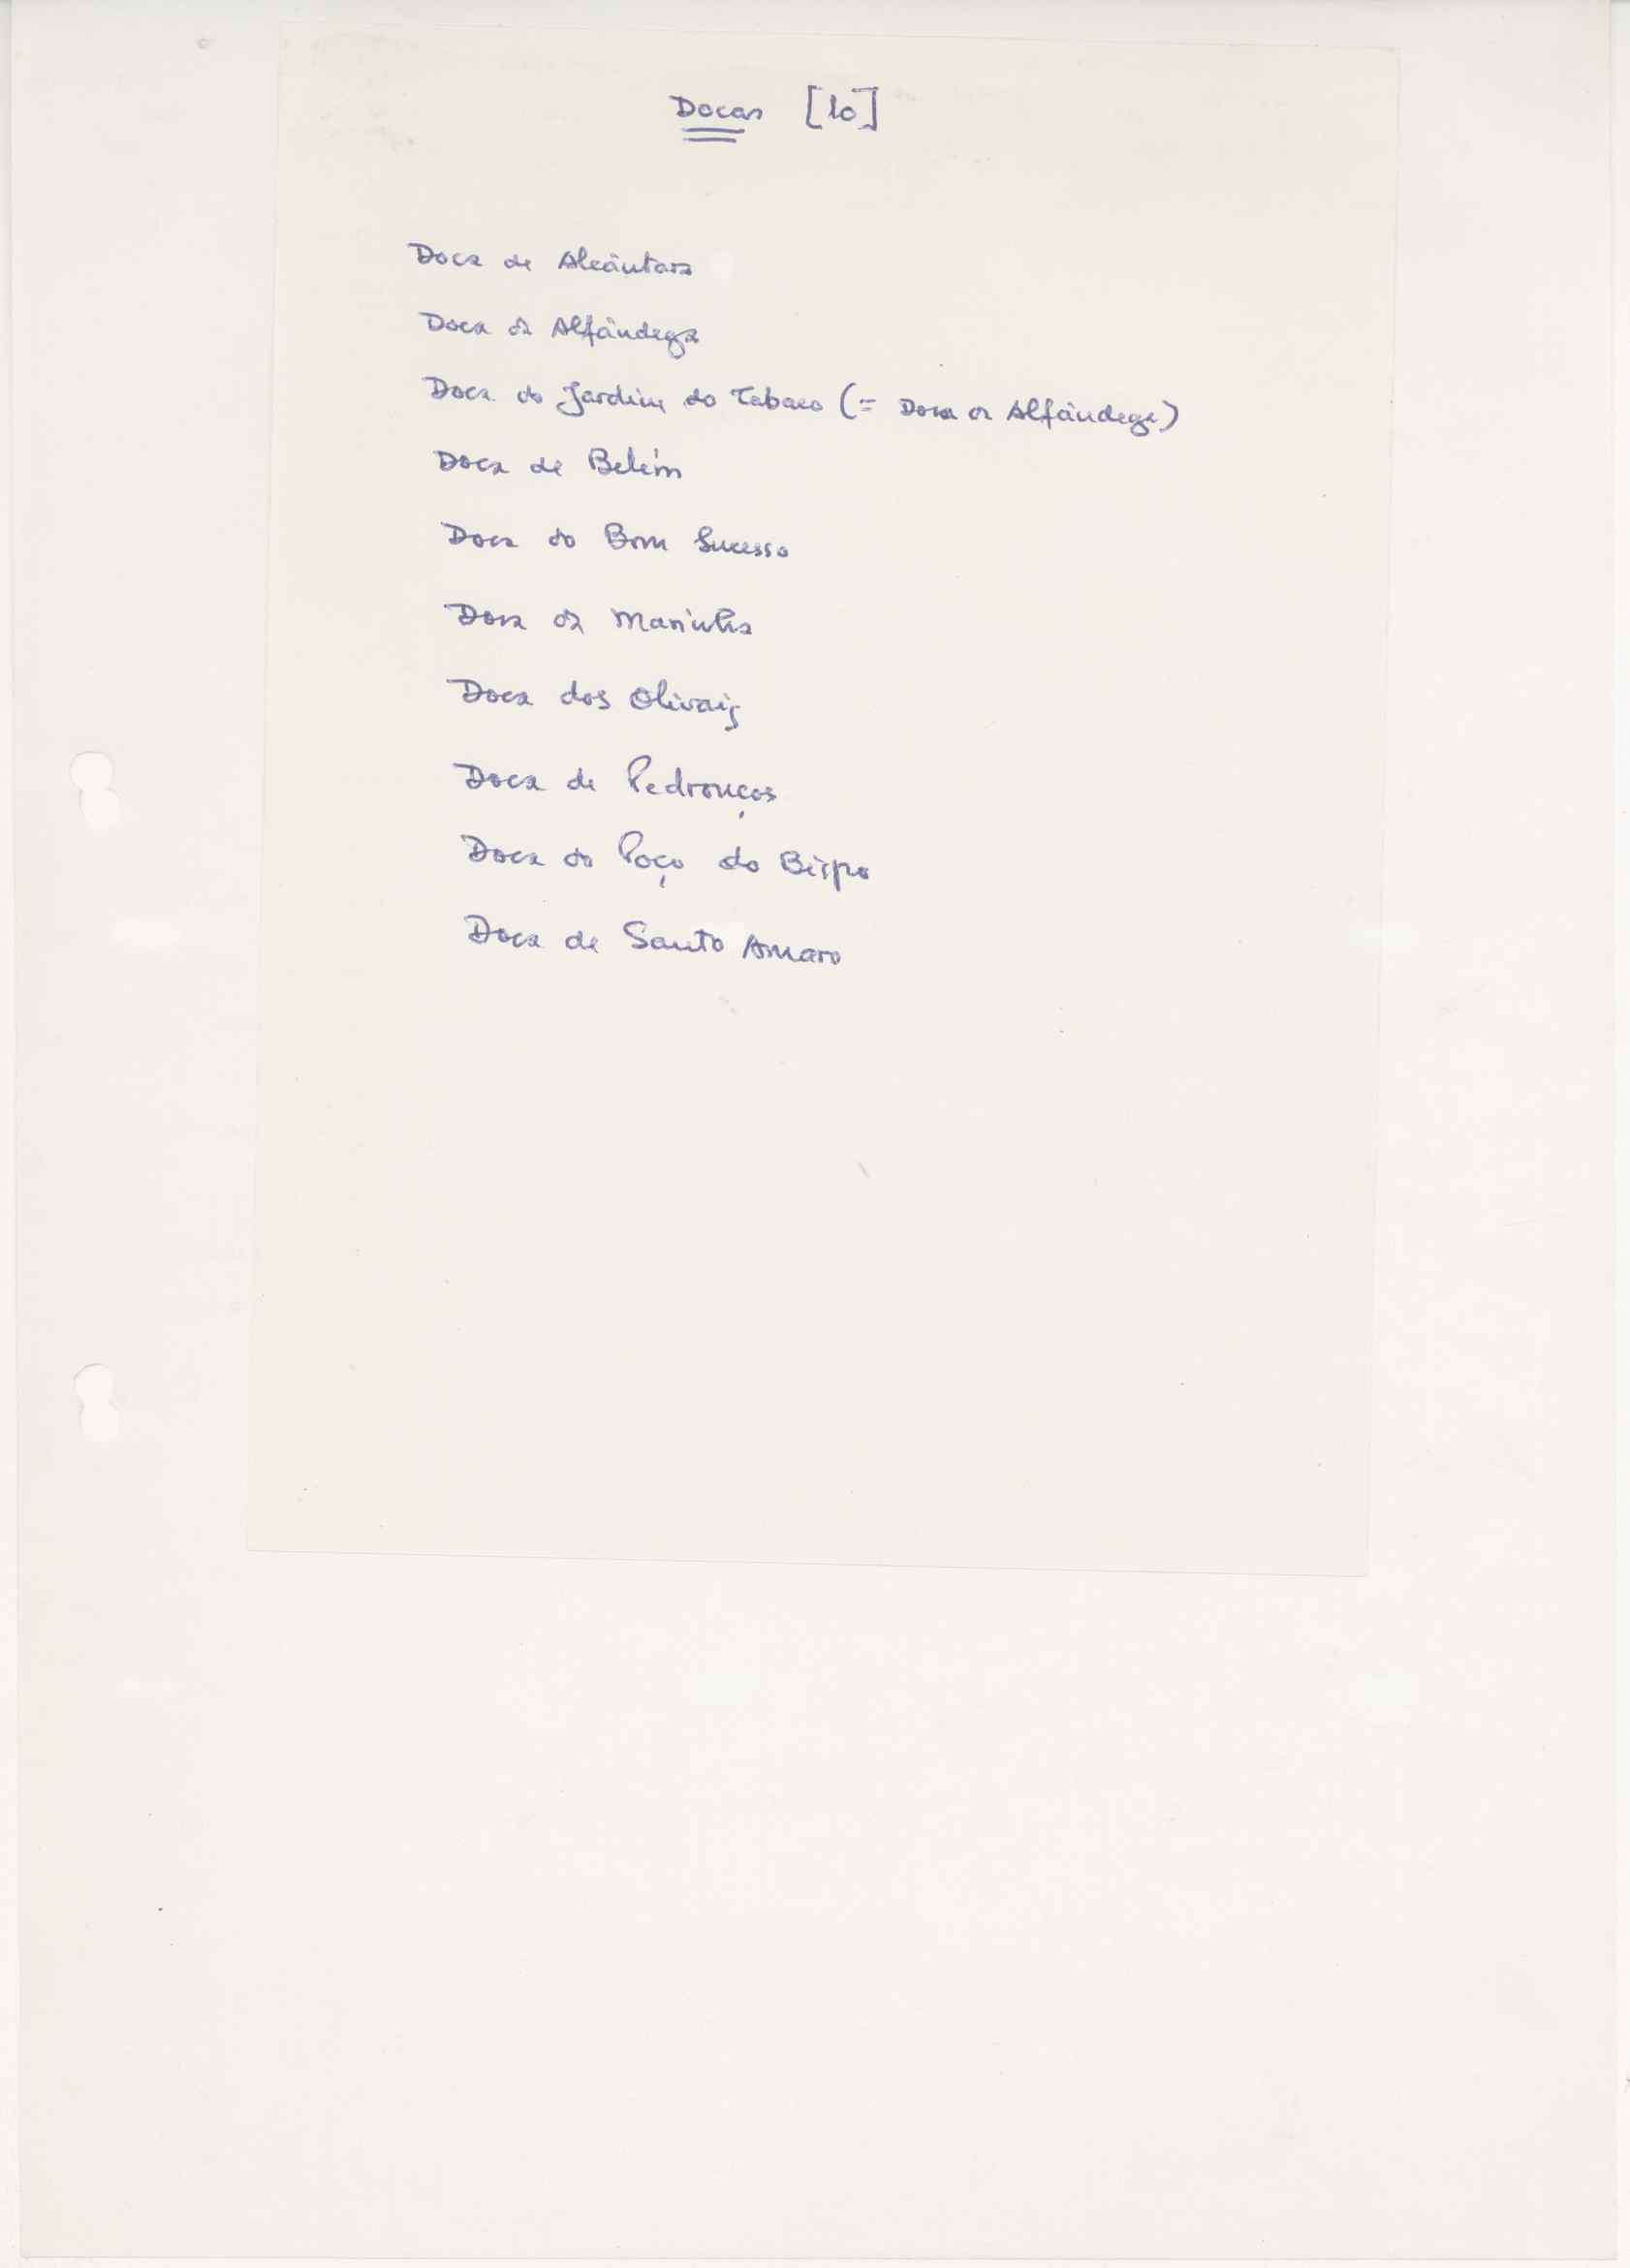 Docas [10]
Doca de Alcântara
Doca da Alfândega
Doca do Jardim do Tabaco (= Doca da Alfândega)
Doca de Belém
Doca do Bom Sucesso
Doca da Marinha
Doca dos Olivais
Doca de Pedrouços
Doca do Poço do Bispo
Doca de Santo Amaro